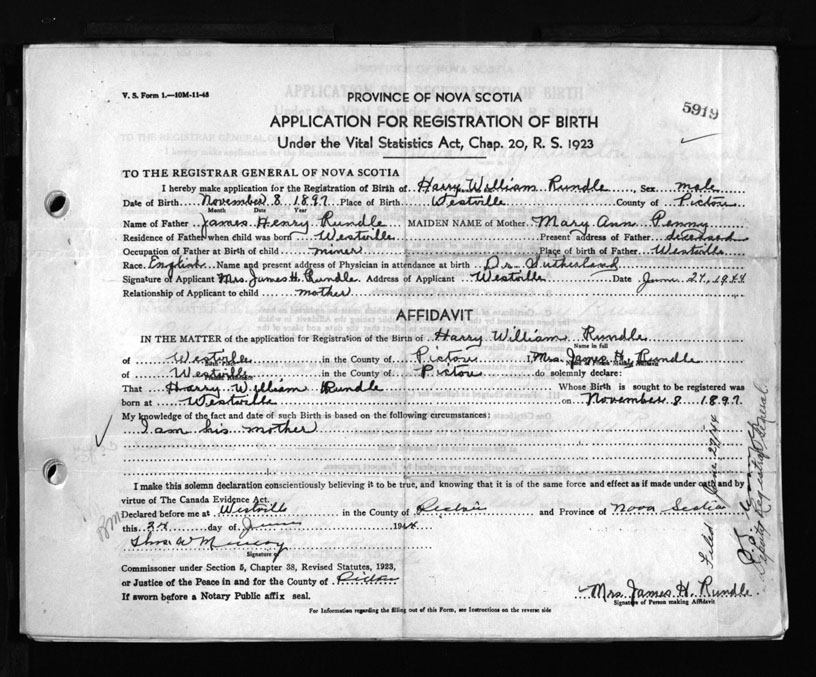 V. S. Form 1.—10M-11-43
5919
PROVINCE OF NOVA SCOTIA
APPLICATION FOR REGISTRATION OF BIRTH
Under the Vital Statistics Act, Chap. 20, R. S. 1923
TO THE REGISTRAR GENERAL OF NOVA SCOTIA
I hereby make application for the Registration of Birth of Harry William Rundle Sex male
Date of Birth November 8 1897 Place of Birth Westville County of Pictou
Month Date Year
Name of Father James Henry Rundle MAIDEN NAME of Mother Mary Ann Penny
Residence of Father when child was born Westville Present address of Father deceased
Occupation of Father at Birth of child miner Place of birth of Father Westville
Race English Name and present address of Physician in attendance at birth Dr. Sutherland
Signature of Applicant Mrs. James H. Rundle Address of Applicant Westville Date June 27, 1944
Relationship of Applicant to child mother
AFFIDAVIT
IN THE MATTER of the application for Registration of the Birth of Harry William Rundle
Name in full
of Westville in the County of Pictou I, Mrs. James H. Rundle
of Westville in the County of Pictou do solemnly declare:
That Harry William Rundle Whose Birth is sought to be registered was
born at Westville on November 8 1897
My knowledge of the fact and date of such Birth is based on the following circumstances:
I am his mother
I make this solemn declaration conscientiously believing it to be true, and knowing that it is of the same force and effect as if made under oath and by
virtue of The Canada Evidence Act.
Declared before me at Westville in the County of Pictou and Province of Nova Scotia
this day of June 1944
Signature of
Commissioner under Section 5, Chapter 38, Revised Statutes, 1923,
or Justice of the Peace in and for the County of Pictou
If sworn before a Notary Public affix seal.
Mrs. James H. Rundle
Signature of Person making Affidavit
For Information regarding the filling out of this Form, see Instructions on the reverse side
Filed June 29/44
Deputy Registrar General